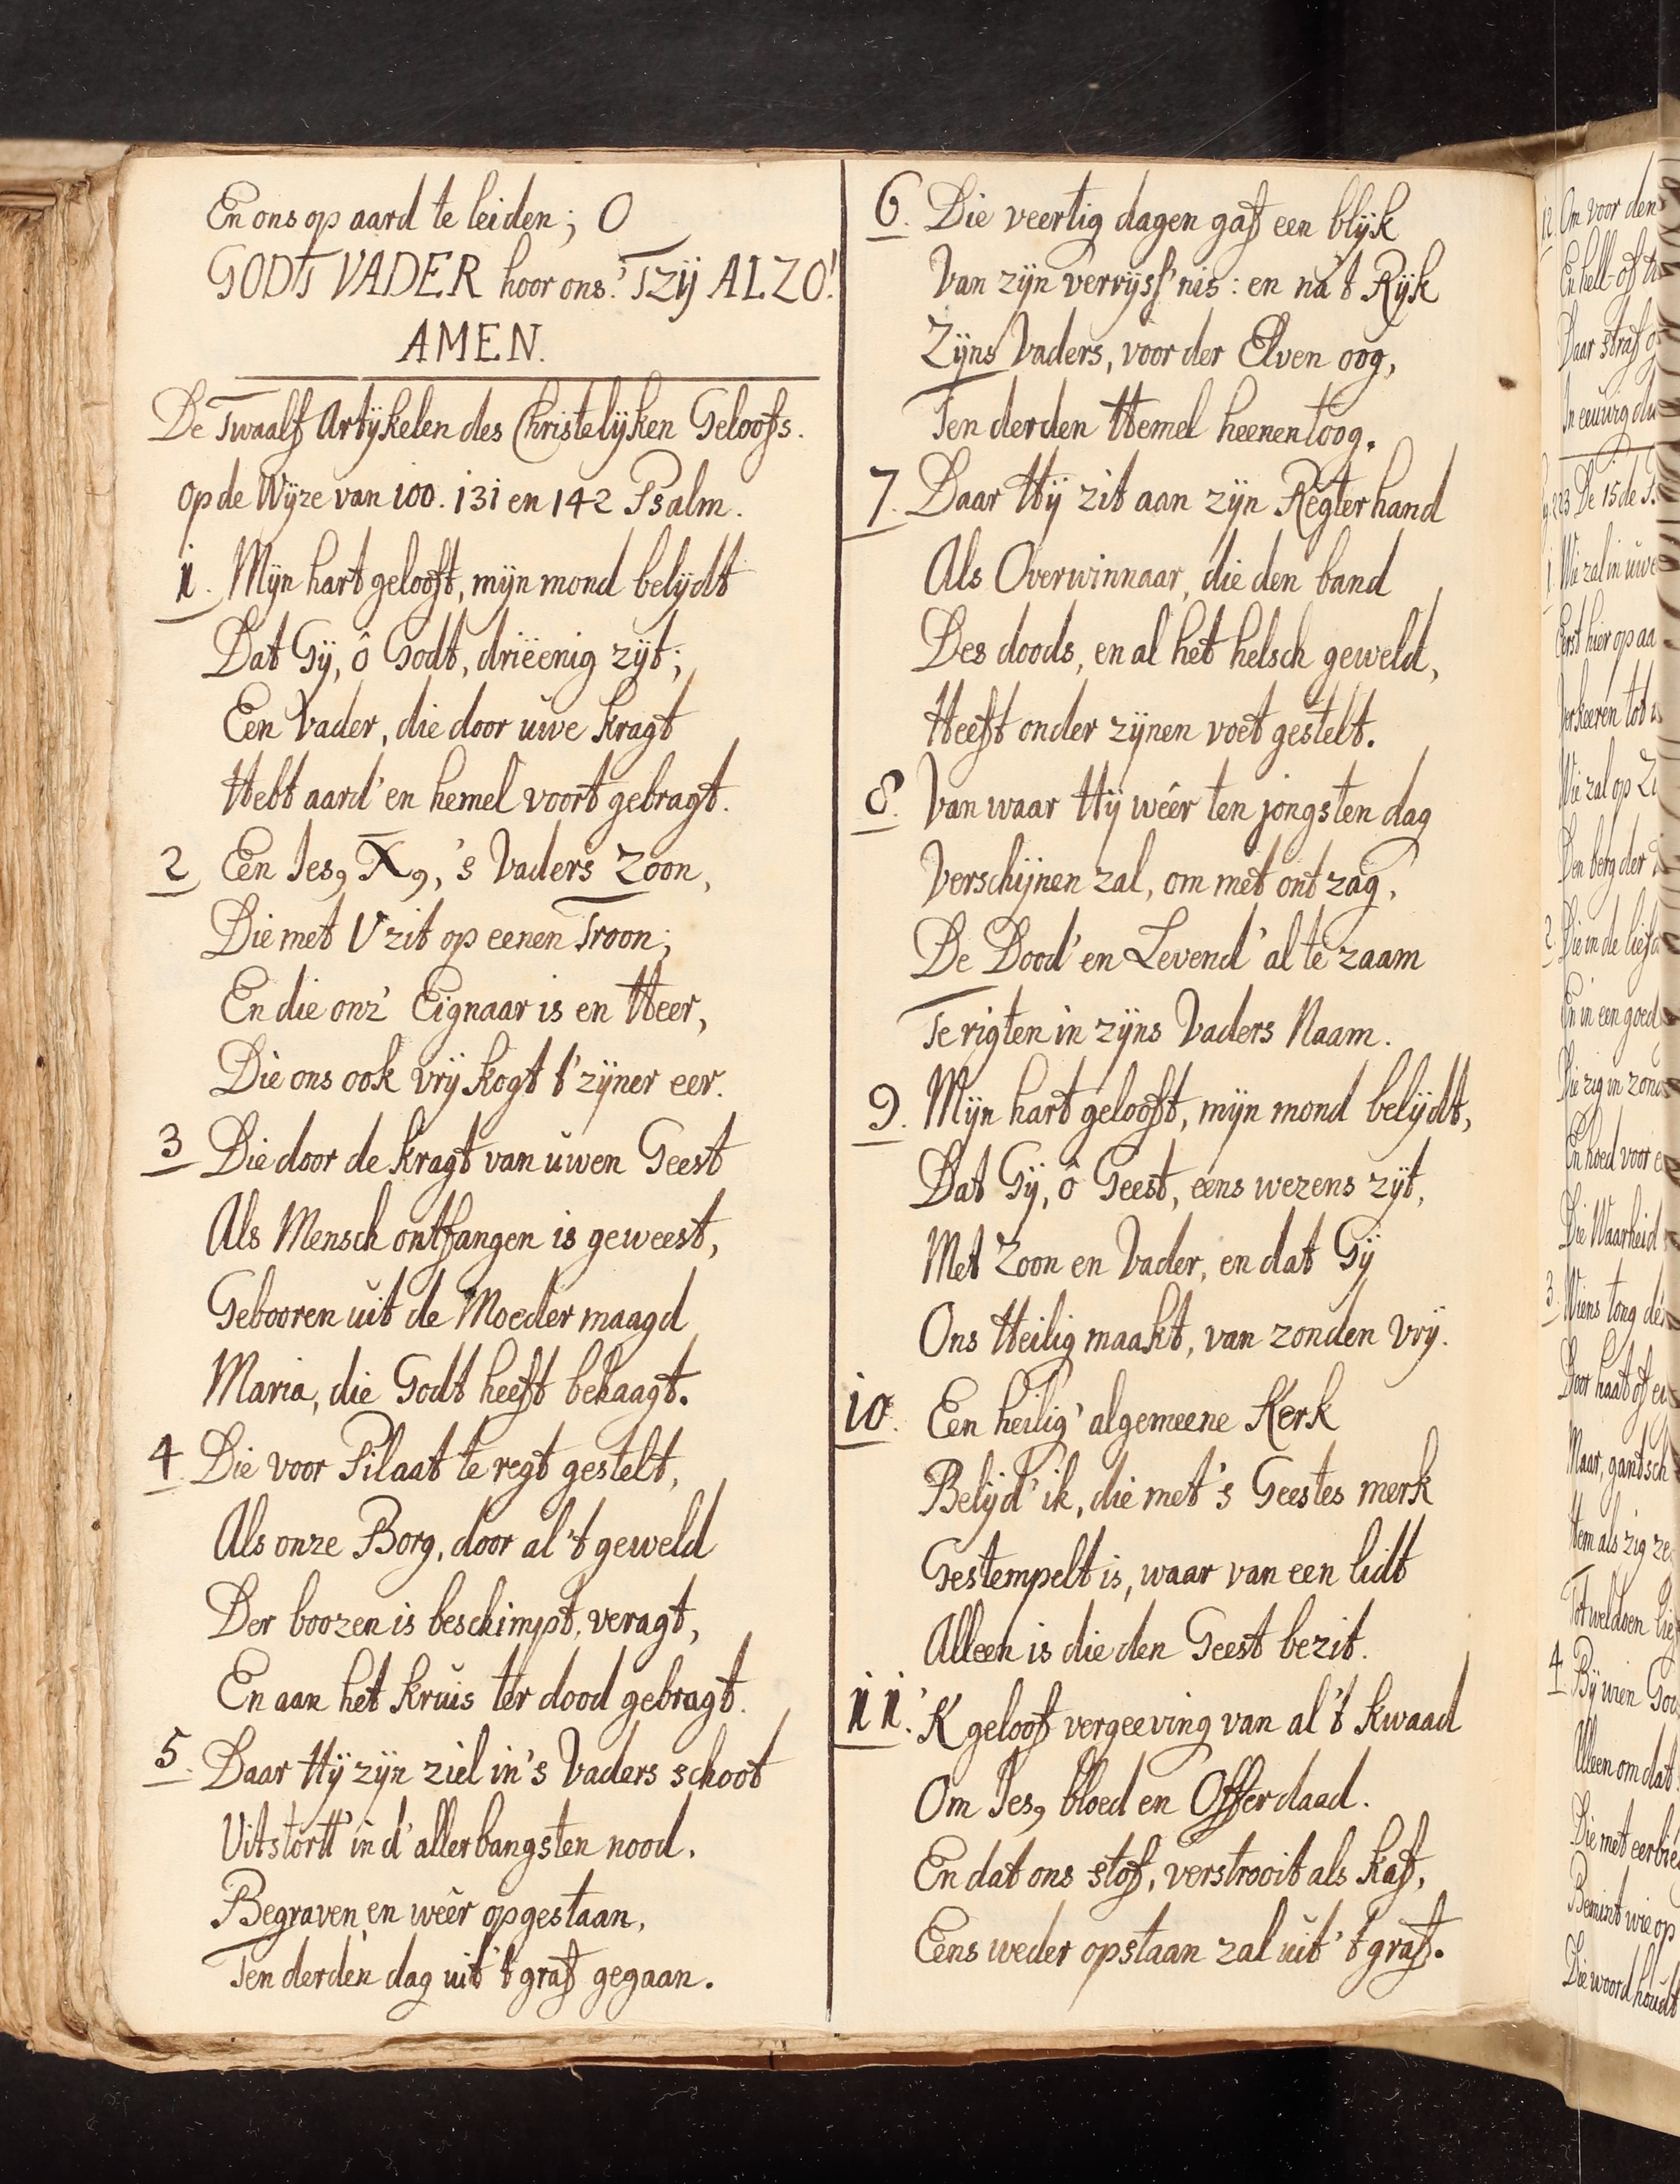 En ons op aard te leiden; O
GODT VADER hoor ons! 'Tzij ALZO!
AMEN.
De Twaalf Artykelen des Christelyken Geloofs.
op de Wÿze van 100. 131 en 142 Psalm.
1. Mÿn hart gelooft, mÿn mond belydt
Dat Gÿ, ô Godt, drieenig zÿt;
Een Vader, die door uwe kragt
Hebt aard' en hemel voort gebragt.
2 En Jes9 X9, 's Vaders Zoon,
Die met U zit op eenen Troon;
En die onz' Eignaar is en Heer,
Die ons ook vrij kogt t' zÿner eer.
3 Die door de kragt van uwen Geest
Als Mensch ontfangen is geweest,
Gebooren uit de Moeder maagd
Maria, die Godt heeft behaagt.
4. Die voor Pilaat te regt gestelt,
Als onze Borg, door al 't geweld
Der boozen is beschimpt, veragt,
En aan het kruis ter dood gebragt.
5. Daar Hÿ zÿn ziel in 's Vaders schoot
Uitstortt' in d' allerbangsten nood.
Begraven en wêer opgestaan,
Ten derden dag uit 't graf gegaan.
6. Die veertig dagen gaf een blÿk
Van zÿn verryss'nis: en na 't Rÿk
Zÿns Vaders, voor der Elven oog,
Ten derden Hemel heenentoog.
7. Daar Hÿ zit aan zÿn Regterhand
Als Overwinnaar, die den band
Des doods, en al het helsch geweld,
Heeft onder zÿnen voet gestelt.
8. Van waar Hÿ wêer ten jongsten dag
Verschijnen zal, om met ontzag,
De Dood' en Levend' al te zaam
Te rigten in zÿns Vaders Naam.
9. Mÿn hart gelooft, mÿn mond belydt,
Dat Gÿ, ô Geest, eens wezens zÿt,
Met Zoon en Vader, en dat Gÿ
Ons Heilig maakt, van zonden vrÿ.
10. Een heilig' algemeene Kerk
Belijd' ik, die met 's Geestes merk
Gestempelt is, waar van een lidt
Alleen is die den Geest bezit.
11. 'K geloof vergeeving van al 't kwaad
Om Jes9 bloed en Offerdaad.
En dat ons stof, verstrooit als kaf,
Eens weder opstaan zal uit 't graf.
12. Om voor den
En hell- of
Daar straf
In eeuwig
De 15de
1. Wie zal in uwe
Eerst hier op aa
Verkeeren tot
Wie zal op
Den berg der
2. Die in de
En in een goed
Die zig in
En hoed voor
Die Waarheid
3. Wiens tong
Door haat of
Maar, gantsch
Hem als zig
Tot weldoen
4. Bÿ wien
Alleen om dat
Die met
Bemint wie op
Die woord houdt